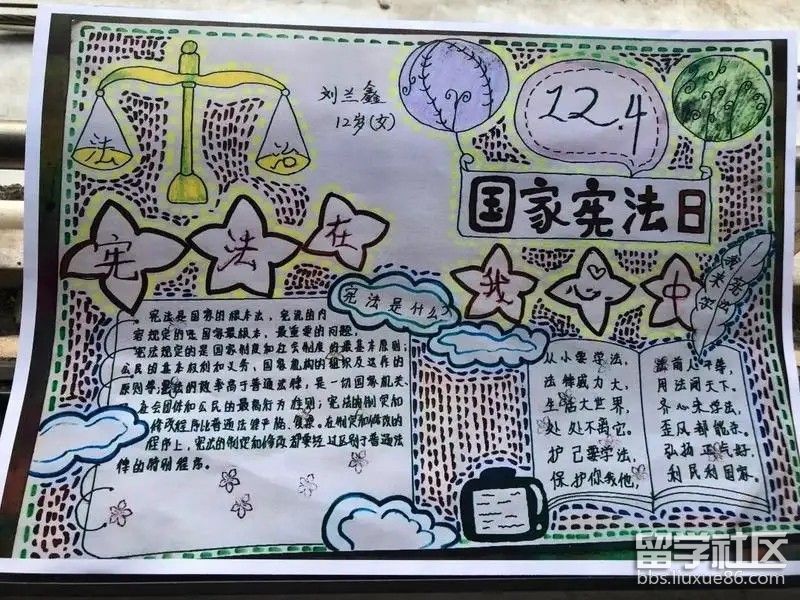 法 治
刘兰鑫
12岁(女)
12.4
国家宪法日
宪法在
我心中
宪法是什么?
宪法是国家的根本法,宪法的内
容规定的是国家最根本、最重要的问题,
宪法规定的是国家制度和社会制度的最基本原则,
公民的基本权利和义务、国家机构的组织及运作的
原则等,宪法的效率高于普通法律,是一切国家机关、
社会团体和公民的最高行为准则;宪法的制定和
修改程序比普通法律严格、复杂。在制定和修改的
程序上,宪法的制定和修改都要经过区别于普通法
律的特别程序。
从小要学法,
法律威力大,
生活大世界,
处处不离它。
护己要学法,
保护你我他,
法前人平等,
用法闯天下。
齐心来学法,
歪风都能杀。
弘扬正气好,
利民利国家。
留学社区
bbs.liuxue86.com